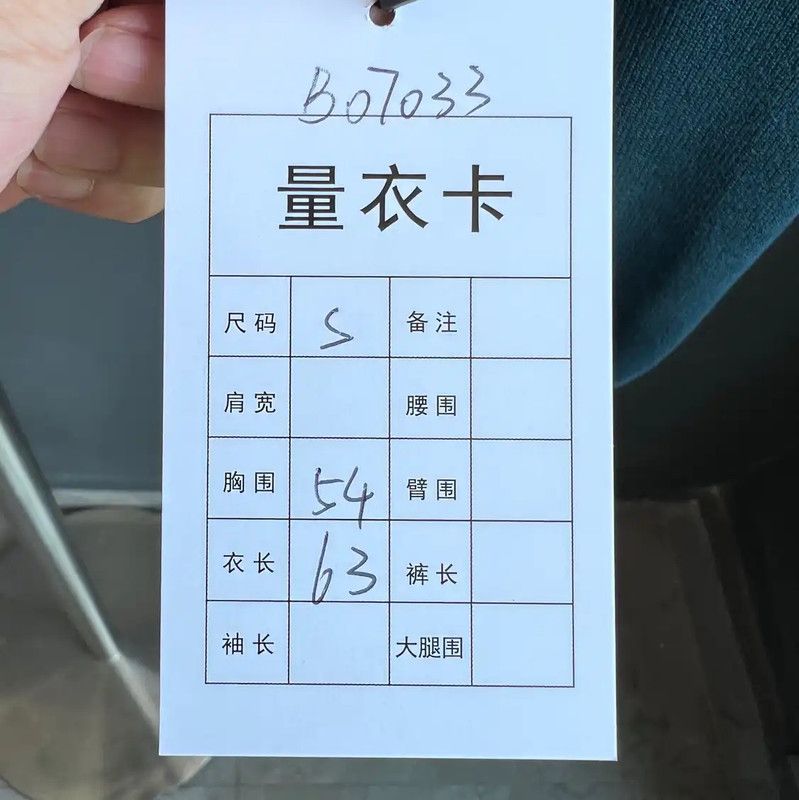 B07033
量衣卡
尺码 S 备注
肩宽 腰围
胸围 54 臂围
衣长 63 裤长
袖长 大腿围